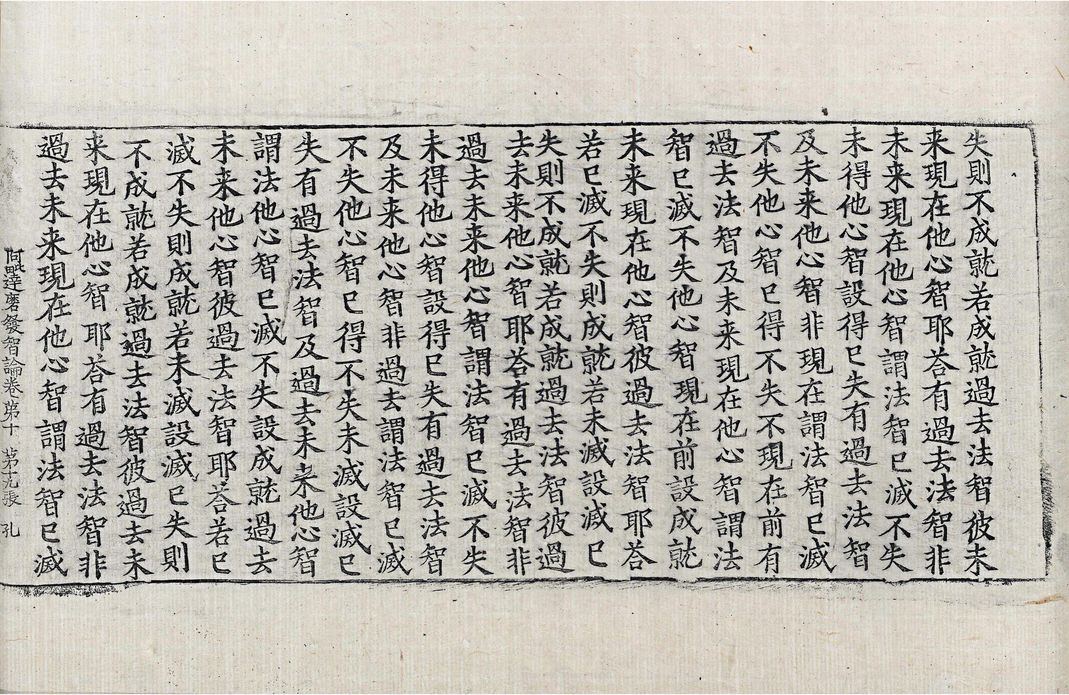 失則不成就若成就過去法智彼未
来現在他心智耶荅有過去法智非
未来現在他心智謂法智已滅不失
未得他心智設得已失有過去法智
及未来他心智非現在謂法智已滅
不失他心智已得不失不現在前有
過去法智及未来現在他心智謂法
智已滅不失他心智現在前設成就
未来現在他心智彼過去法智耶荅
若已滅不失則成就若未滅設滅已
失則不成就若成就過去法智彼過
去未来他心智耶荅有過去法智非
過去未来他心智謂法智已滅不失
未得他心智設得已失有過去法智
及未来他心智非過去謂法智已滅
不失他心智已得不失未滅設滅已
失有過去法智及過去未来他心智
謂法他心智已滅不失設成就過去
未来他心智彼過去法智耶荅若已
滅不失則成就若未滅設滅已失則
不成就若成就過去法智彼過去未
来現在他心智耶荅有過去法智非
過去未来現在他心智謂法智已滅
阿毗達磨發智論卷第十 第十九張 孔